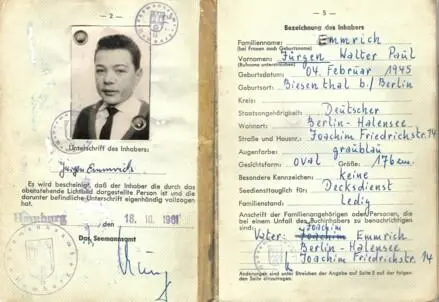 — 2 —
Unterschrift des Inhabers:
Jürgen Emmrich
Es wird bescheinigt, daß der Inhaber die durch das
obenstehende Lichtbild dargestellte Person ist und die
darunter befindliche Unterschrift eigenhändig vollzogen
hat.
Hamburg, den 18. 10. 1961
Das Seemannsamt
— 5 —
Bezeichnung des Inhabers
Familienname: Emmrich
(bei Frauen auch Geburtsname)
Vornamen: Jürgen Walter Paul
(Rufname unterstreichen)
Geburtsdatum: 04. Februar 1945
Geburtsort: Biesenthal b./Berlin
Kreis:
Staatsangehörigkeit: Deutscher
Wohnort: Berlin-Halensee
Straße und Hausnr.: Joachim Friedrichstr. 14
Augenfarbe: graublau
Gesichtsform: oval Größe: 176 cm
Besondere Kennzeichen: keine
Seediensttauglich für: Decksdienst
Familienstand: ledig
Anschrift der Familienangehörigen oder Personen, die
bei einem Unfall des Buchinhabers zu benachrichtigen
sind: Joachim
Vater: Emmrich
Berlin-Halensee
Joachim Friedrichstr. 14
Änderungen sind unter Streichen der Angabe auf Seite 5 auf der folgen-
den Seite einzutragen.